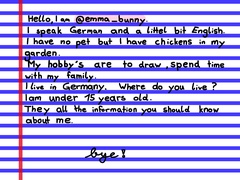 Hello, I am @emma_bunny.
I speak German and a littel bit English.
I have no pet but I have chickens in my
garden.
My hobby's are to draw, spend time
with my family.
I live in Germany. Where do you live?
I am under 15 years old.
They all the information you should know
about me.
bye!